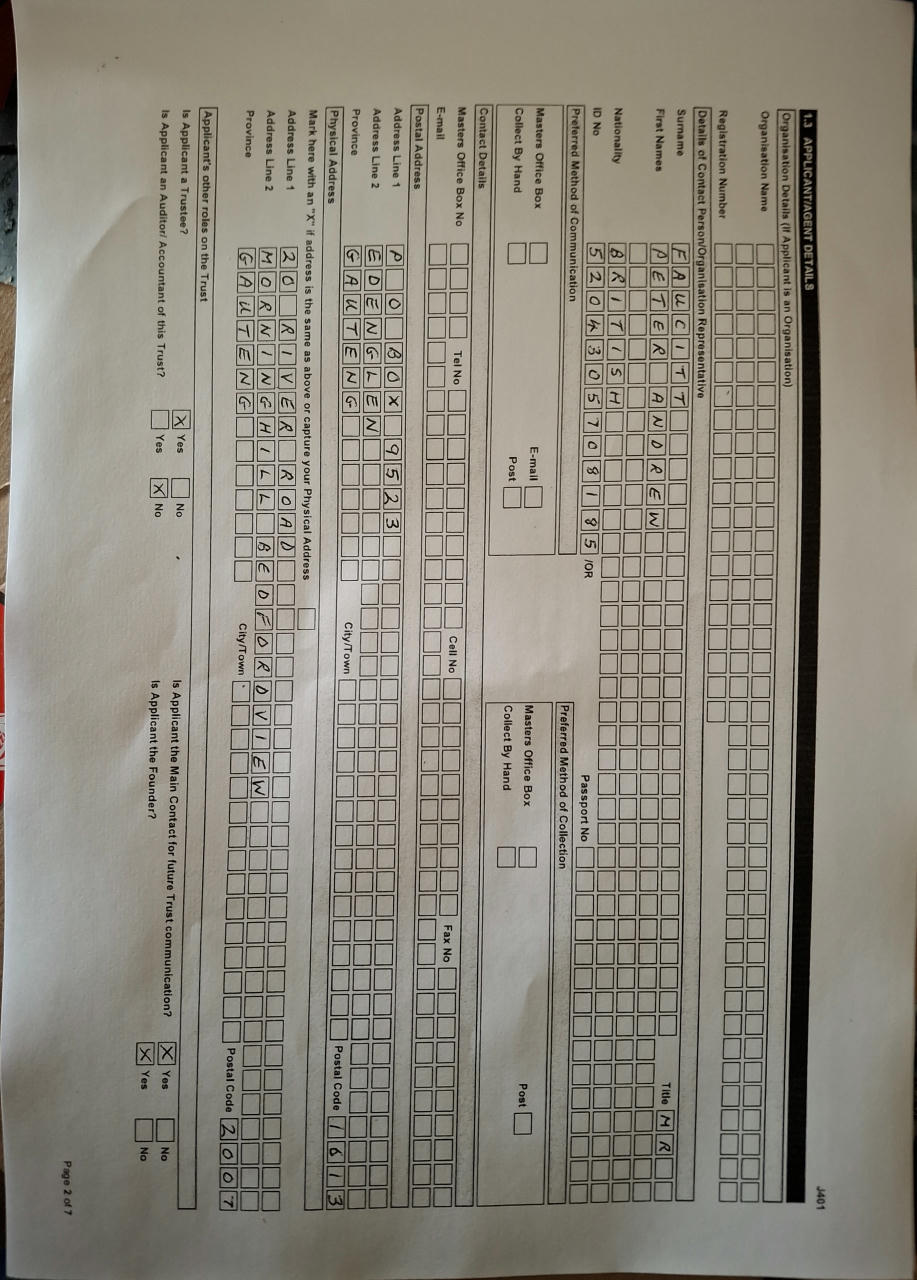 J401
1.3 APPLICANT/AGENT DETAILS
Organisation Details (If Applicant is an Organisation)
Organisation Name
Registration Number
Details of Contact Person/Organisation Representative
Surname FAUCITT Title MR
First Names PETER ANDREW
Nationality BRITISH
ID No 5204305708185 /OR Passport No
Preferred Method of Communication Preferred Method of Collection
Masters Office Box E-mail Masters Office Box Post
Collect By Hand Post Collect By Hand
Contact Details
Masters Office Box No Tel No Cell No Fax No
E-mail
Postal Address
Address Line 1 P O BOX 9523
Address Line 2 EDENGLEN
Province GAUTENG City/Town Postal Code 1613
Physical Address
Mark here with an "X" if address is the same as above or capture your Physical Address
Address Line 1 20 RIVER ROAD
Address Line 2 MORNINGHILL BEDFORDVIEW
Province GAUTENG City/Town Postal Code 2007
Applicant's other roles on the Trust
Is Applicant a Trustee? X Yes No Is Applicant the Main Contact for future Trust communication? X Yes No
Is Applicant an Auditor/ Accountant of this Trust? Yes X No Is Applicant the Founder? X Yes No
Page 2 of 7